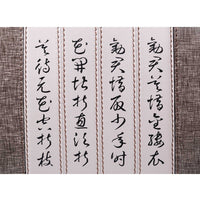 勸君莫惜金縷衣
勸君惜取少年时
花開堪折直須折
莫待无花空折枝